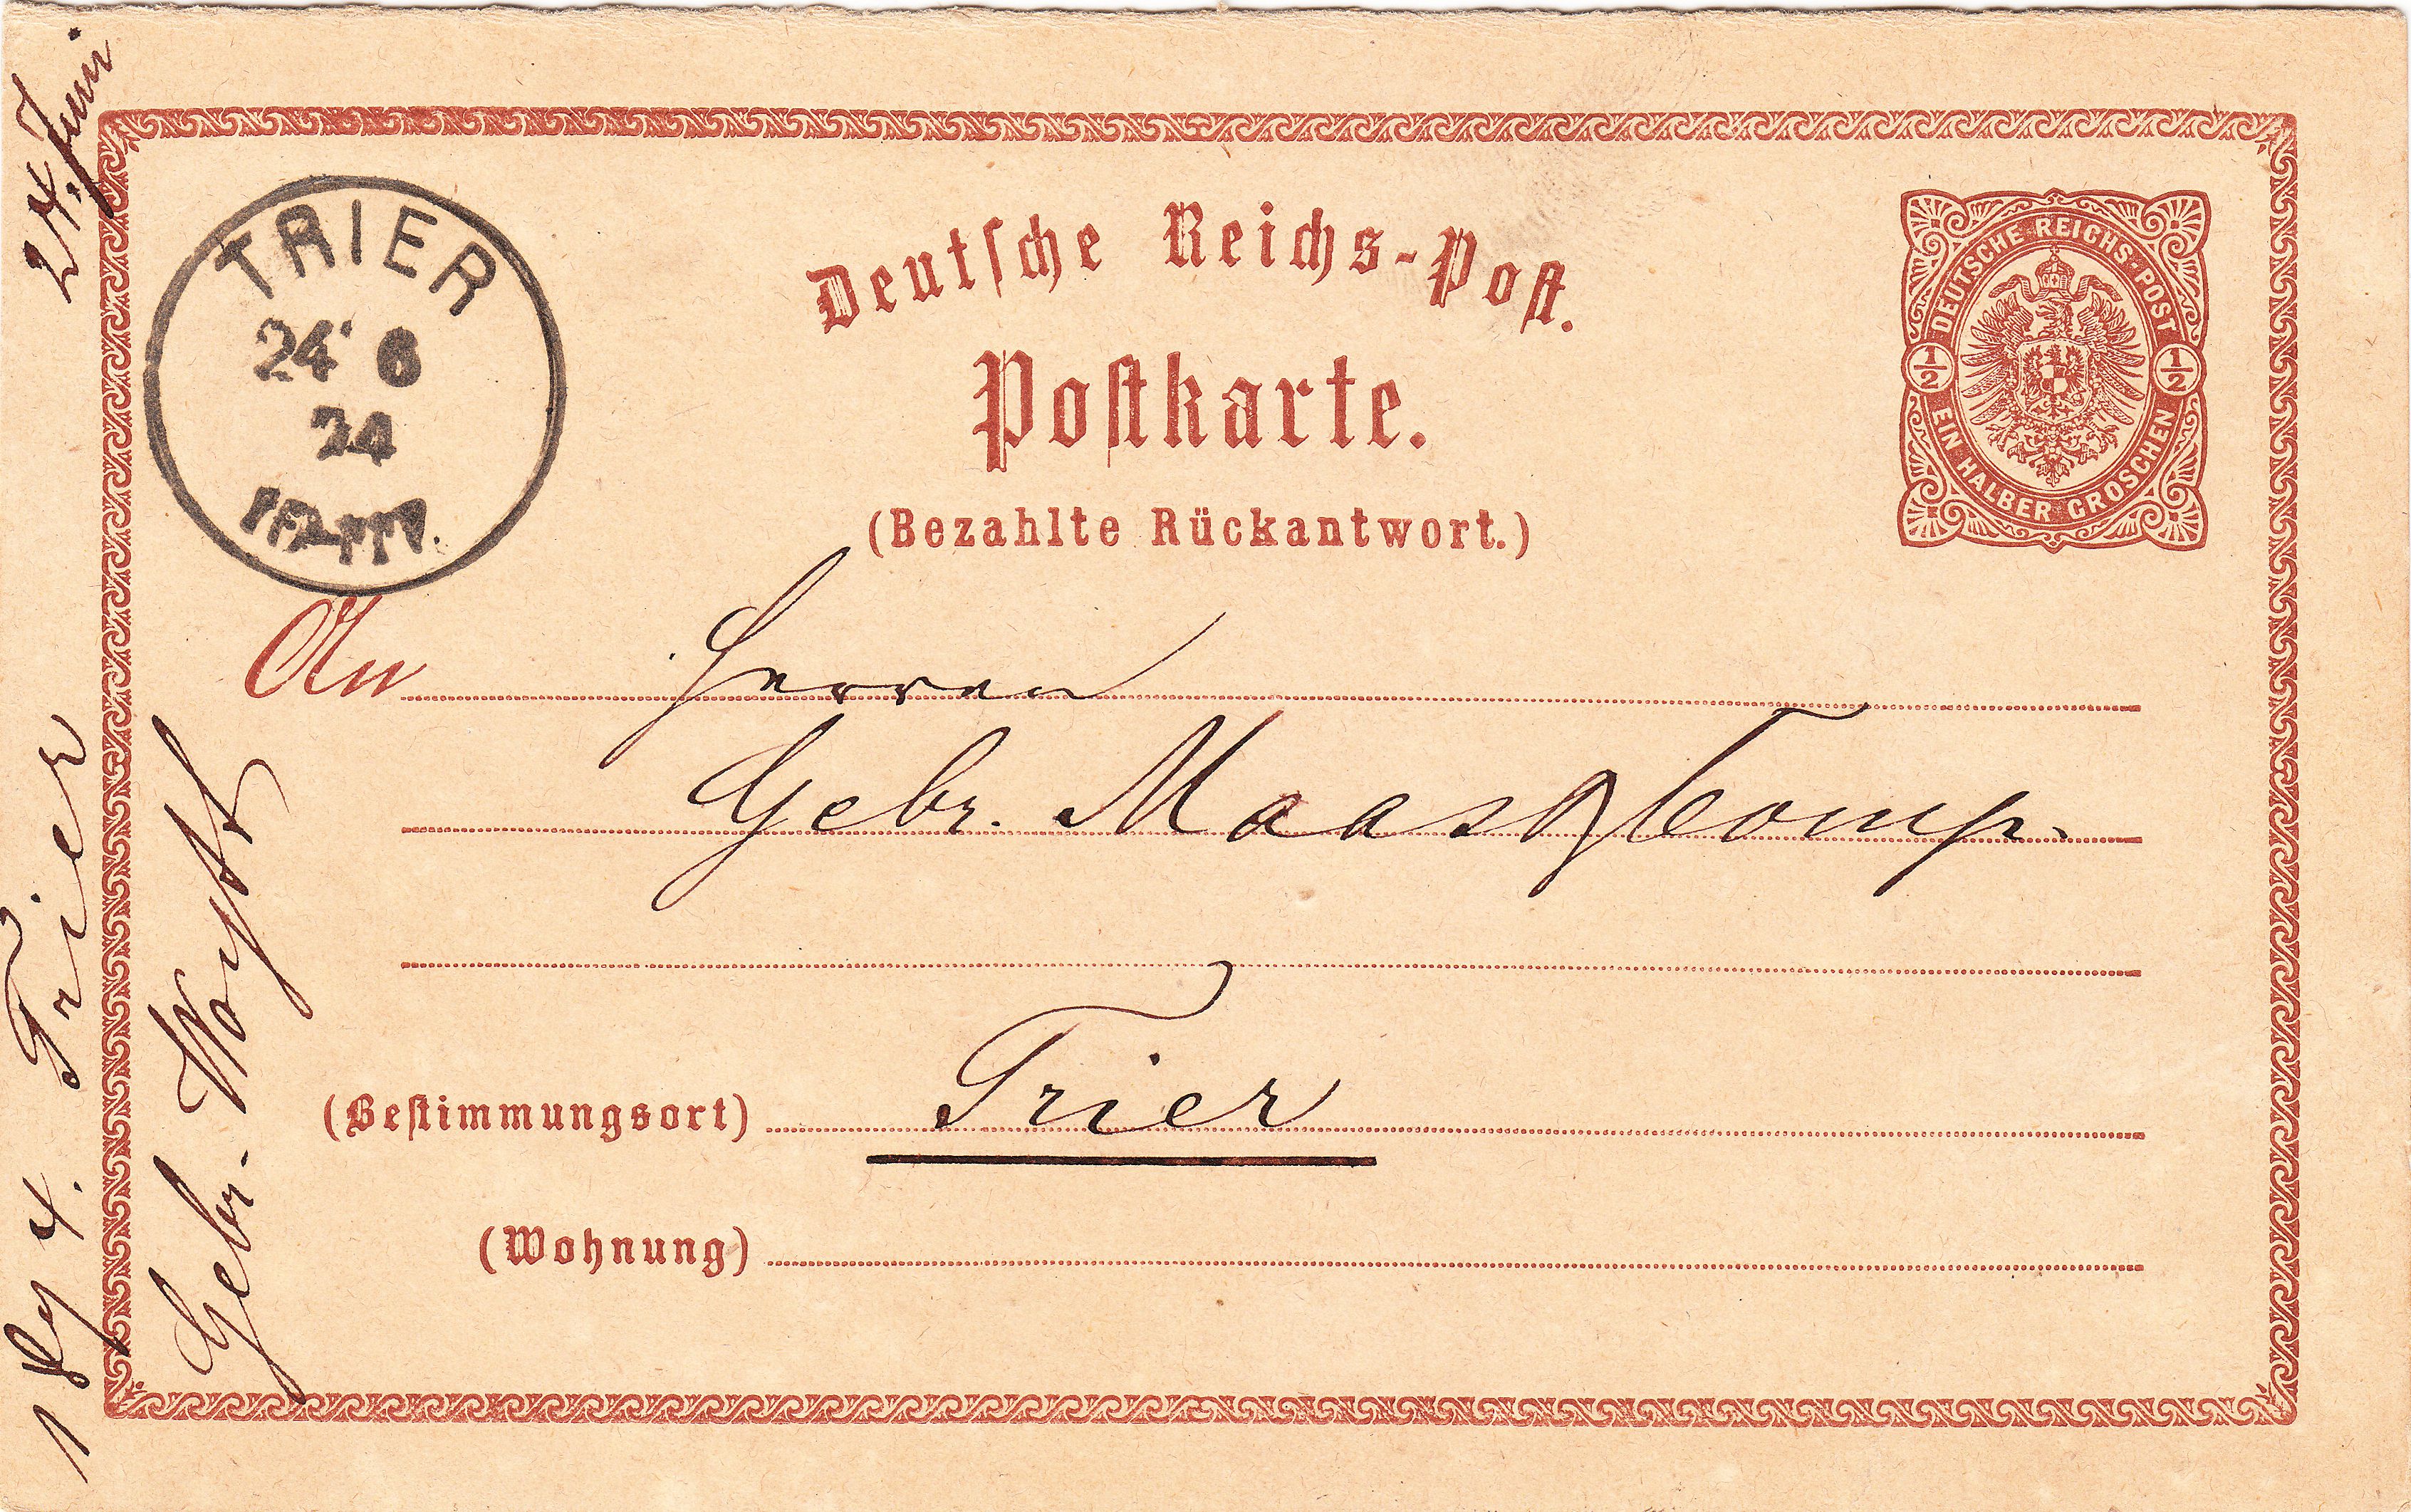 24. Juni
TRIER
24 6
24
Deutsche Reichs-Post.
Postkarte.
(Bezahlte Rückantwort.)
DEUTSCHE REICHS-POST
1/2 1/2
EIN HALBER GROSCHEN
An Herren
Gebr. Maas & Comp.
(Bestimmungsort) Trier
(Wohnung)
1874. Trier
Gebr.